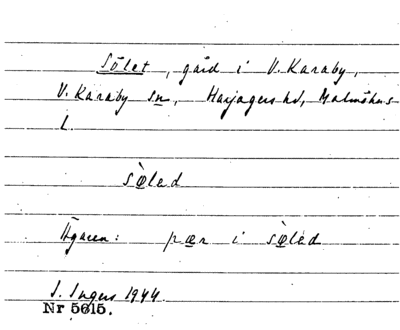 Sölet, gård i V. Karaby,
V. Karaby sn, Harjagers hd, Malmöhus
L.
sø̀led
Ägaren: pær i sø̀led
I. Ingers 1944.
Nr 5615.